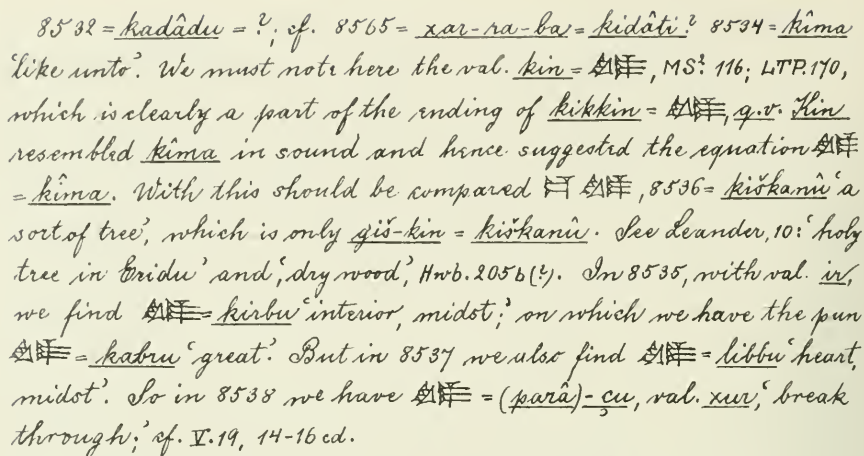 8532 = kadâdu = ?; cf. 8565 = xar-ra-ba = kidâti? 8534 = kîma
'like unto'. We must note here the val. kin = , MS? 116; LTP. 170,
which is clearly a part of the ending of kikkin = , q.v. Kin
resembled kîma in sound and hence suggested the equation
= kîma. With this should be compared , 8536 = kiškanû 'a
sort of tree', which is only giš-kin = kiškanû. See Leander, 10: 'holy
tree in Eridu' and 'dry wood', Hwb. 205b(?). In 8535, with val. ir,
we find = kirbu 'interior, midst;' on which we have the pun
= kabru 'great'. But in 8537 we also find = libbu 'heart,
midst'. So in 8538 we have = (parâ)-çu, val. xur, 'break
through;' cf. V. 19, 14-16 cd.